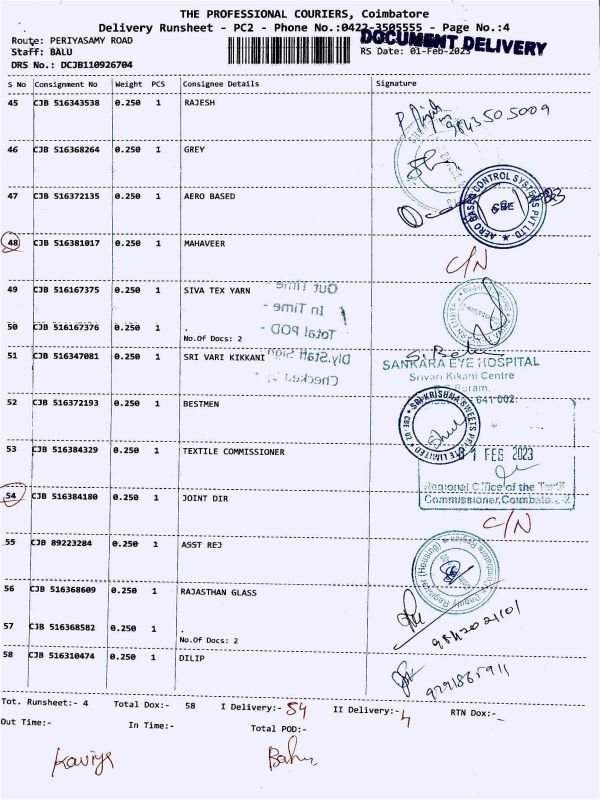 THE PROFESSIONAL COURIERS, Coimbatore
Delivery Runsheet - PC2 - Phone No.:0422-3505555 - Page No.:4
DOCUMENT DELIVERY
Route: PERIYASAMY ROAD
Staff: BALU
RS Date: 01-Feb-2023
DRS No.: DCJB110926704
S No Consignment No Weight PCS Consignee Details Signature
45 CJB 516343538 0.250 1 RAJESH
9843505009
46 CJB 516368264 0.250 1 GREY
47 CJB 516372135 0.250 1 AERO BASED
AERO BASED CONTROL SYSTEMS PVT LTD
CBE
48 CJB 516381017 0.250 1 MAHAVEER
C/N
49 CJB 516167375 0.250 1 SIVA TEX YARN
Out Time
In Time -
Total POD -
50 CJB 516167376 0.250 1
No.Of Docs: 2
Dly.Staff Sign
Checked by
51 CJB 516347081 0.250 1 SRI VARI KIKKANI
SANKARA EYE HOSPITAL
Srivari Kikani Centre
641 002.
52 CJB 516372193 0.250 1 BESTMEN
SRI KRISHNA SWEETS PRIVATE LIMITED
53 CJB 516384329 0.250 1 TEXTILE COMMISSIONER
1 FEB 2023
Regional Office of the Textile
Commissioner, Coimbatore-2
54 CJB 516384180 0.250 1 JOINT DIR
C/N
55 CJB 89223284 0.250 1 ASST REJ
56 CJB 516368609 0.250 1 RAJASTHAN GLASS
57 CJB 516368582 0.250 1
No.Of Docs: 2
9842021101
58 CJB 516310474 0.250 1 DILIP
Tot. Runsheet:- 4 Total Dox:- 58 I Delivery:- 54 II Delivery:- 4 RTN Dox:-
Out Time:- In Time:- Total POD:-
Kaviya